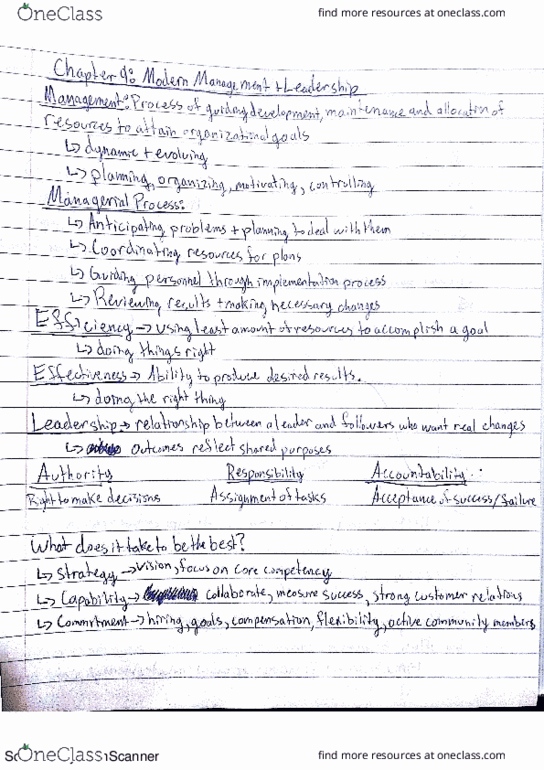 OneClass
find more resources at oneclass.com
Chapter 9: Modern Management + Leadership
Management: Process of guiding development, maintenance and allocation of
resources to attain organizational goals
↳ dynamic + evolving
↳ planning, organizing, motivating, controlling
Managerial Process:
↳ Anticipating problems + planning to deal with them
↳ Coordinating resources for plans
↳ Guiding personnel through implementation process
↳ Reviewing results + making necessary changes
Efficiency → using least amount of resources to accomplish a goal
↳ doing things right
Effectiveness → Ability to produce desired results.
↳ doing the right thing
Leadership → relationship between a leader and followers who want real changes
↳ outcomes reflect shared purposes
Authority Responsibility Accountability
Right to make decisions Assignment of tasks Acceptance of success/failure
What does it take to be the best?
↳ Strategy → vision, focus on core competency
↳ Capability → collaborate, measure success, strong customer relations
↳ Commitment → hiring, goals, compensation, flexibility, active community members
OneClass Scanner
find more resources at oneclass.com